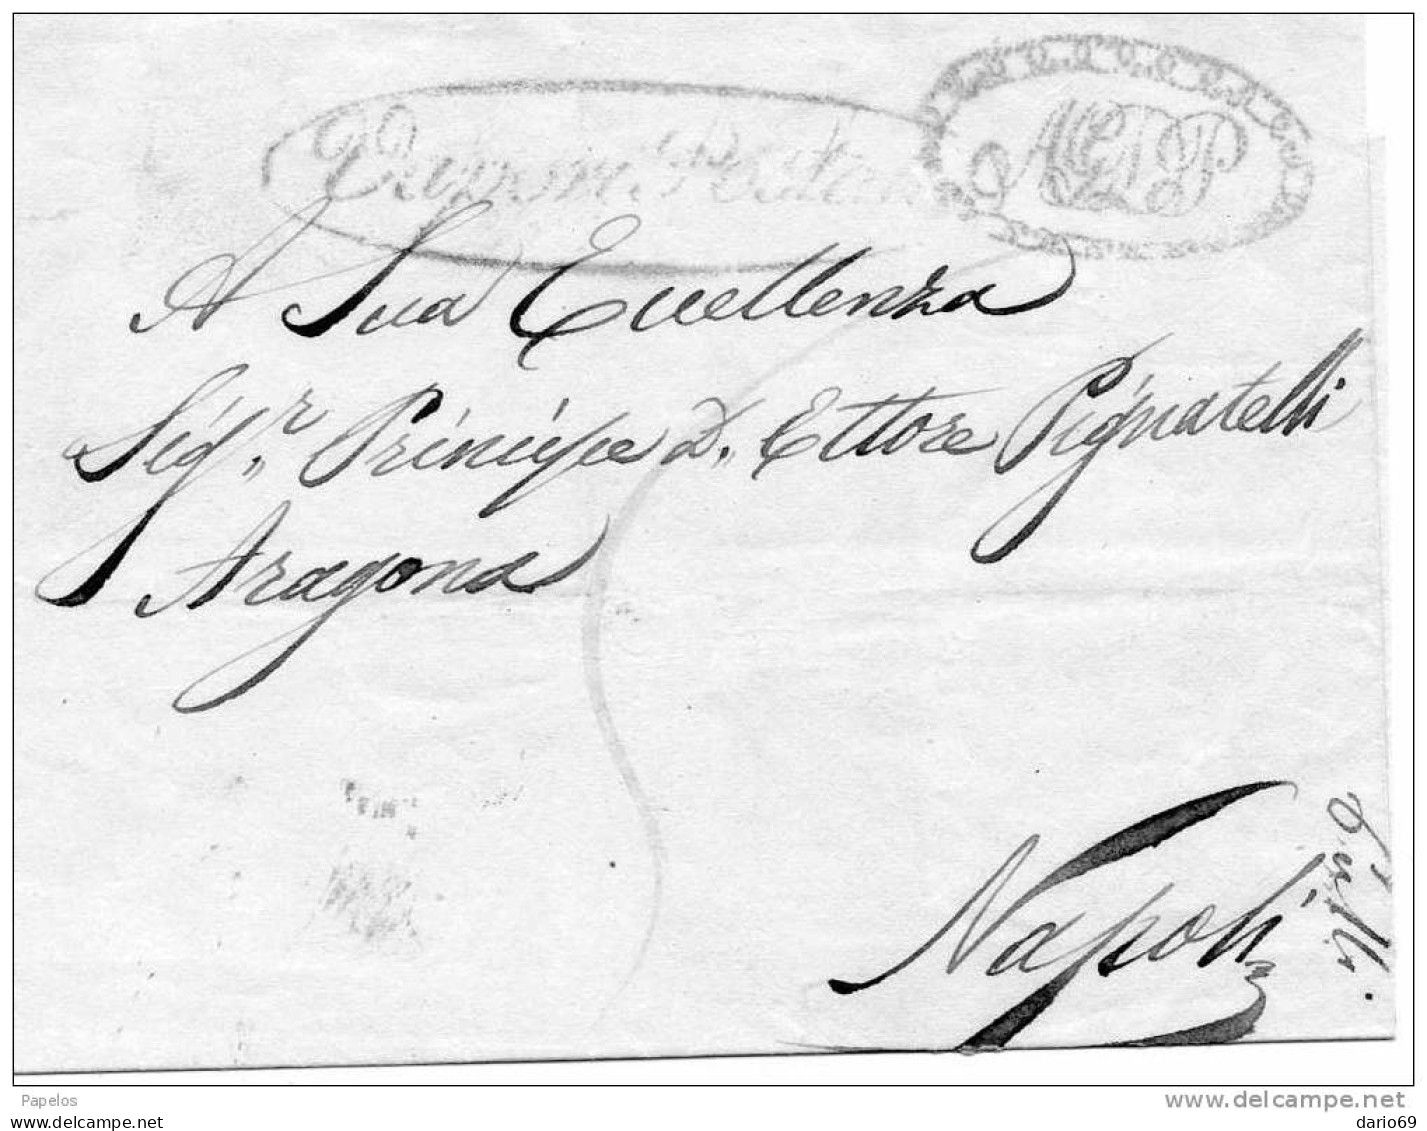 A Sua Eccellenza
Sig.r Principe D. Ettore Pignatelli
Aragona
Napoli
Papelos
www.delcampe.net
www.delcampe.it
dario69